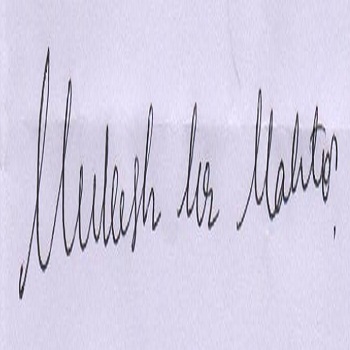 Mukesh kr Mahto